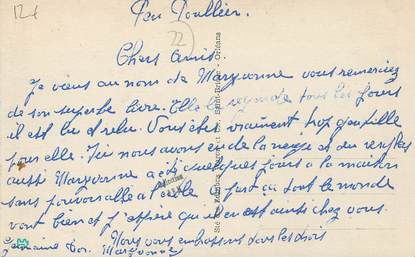 124
Pen Poullier.
22
Chers Amis.
Je viens au nom de Maryvonne vous remerciez
de son superbe livre. Elle le regarde tous les jours
il est lu et relu. Vous êtes vraiment trop gentille
pour elle. Ici nous avons eu de la neige et du verglas
aussi Maryvonne a été quelques jours à la maison
sans pouvoir aller à l'école à part ça tout le monde
vont bien et j'espère qu'il en est ainsi chez vous.
Nous vous embrassons tous les trois
Germaine Maryvonne